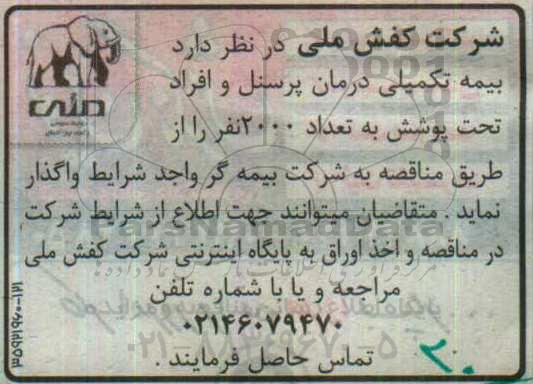 شرکت کفش ملی در نظر دارد
بیمه تکمیلی درمان پرسنل و افراد
تحت پوشش به تعداد ۲۰۰۰نفر را از
طریق مناقصه به شرکت بیمه گر واجد شرایط واگذار
نماید . متقاضیان میتوانند جهت اطلاع از شرایط شرکت
در مناقصه و اخذ اوراق به پایگاه اینترنتی شرکت کفش ملی
مراجعه و یا با شماره تلفن
۰۲۱۴۶۰۷۹۴۷۰
تماس حاصل فرمایند .
ملی
ParsNamadData
۲۰